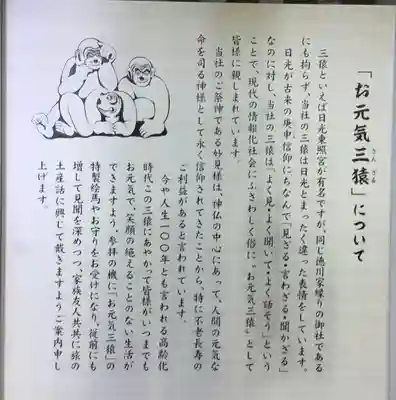 「お元気三猿」について
さん ざる
三猿といえば日光東照宮が有名ですが、同じ徳川家縁りの御社である
にも拘らず、当社の三猿は日光とまったく違った表情をしています。
日光が古来の庚申信仰にちなんで「見ざる・言わざる・聞かざる」
なのに対し、当社の三猿は『よく見・よく聞いて・よく話そう』という
ことで、現代の情報化社会にふさわしく俗に〝お元気三猿〟として
皆様に親しまれています。
当社のご祭神である妙見様は、神仏の中心にあって、人間の元気な
命を司る神様として永く信仰されてきたことから、特に不老長寿の
ご利益があると言われています。
今や人生一〇〇年とも言われる高齢化
時代この三猿にあやかって皆様がいつまでも
お元気で、笑顔の絶えることのない生活が
できますよう、参拝の機に「お元気三猿」の
特製絵馬やお守りをお受けになり、従前にも
増して見聞を深めつつ、家族友人共共に旅の
土産話に興じて戴きますようご案内申し
上げます。